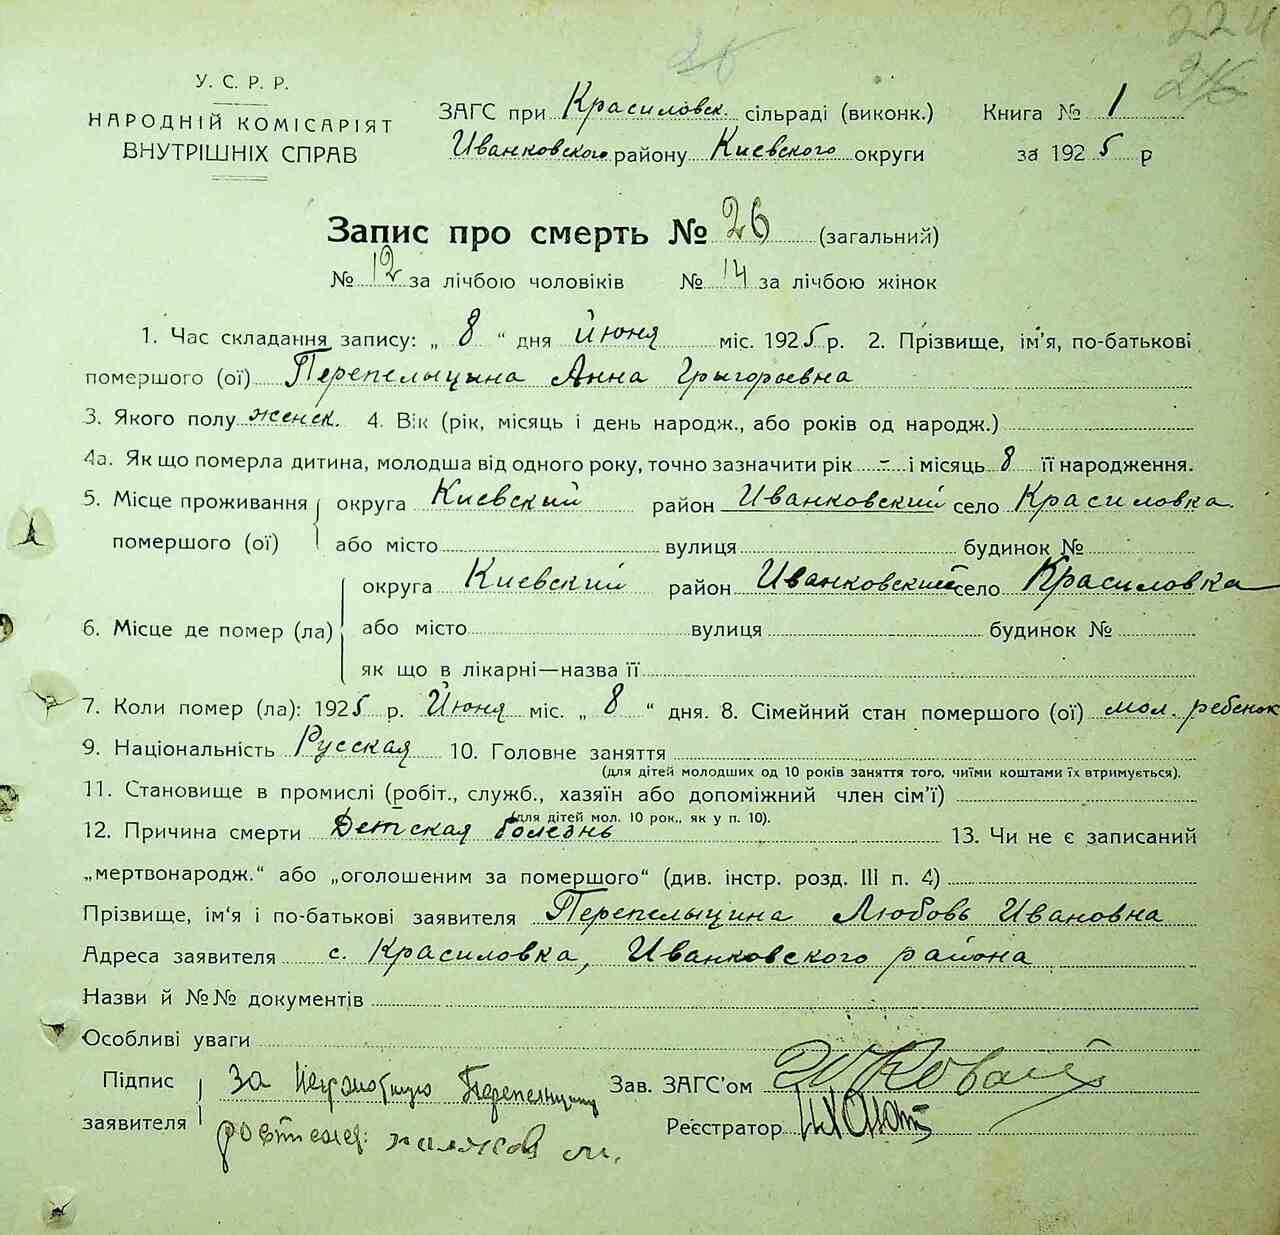 224
26
26
У. С. Р. Р.
НАРОДНІЙ КОМІСАРІЯТ
ВНУТРІШНІХ СПРАВ
ЗАГС при Красиловск. сільраді (виконк.)
Иванковского району Киевского округи
Книга № 1
за 1925 р
Запис про смерть № 26 (загальний)
№ 12 за лічбою чоловіків № 14 за лічбою жінок
1. Час складання запису: „ 8 “ дня Июня міс. 1925 р. 2. Прізвище, ім'я, по-батькові
помершого (ої) Перепелыцина Анна Григорьевна
3. Якого полу женск. 4. Вік (рік, місяць і день народж., або років од народж.)
4а. Як що померла дитина, молодша від одного року, точно зазначити рік - і місяць 8 її народження.
5. Місце проживання округа Киевский район Иванковский село Красиловка.
помершого (ої) або місто вулиця будинок №
округа Киевский район Иванковский село Красиловка
6. Місце де помер (ла) або місто вулиця будинок №
як що в лікарні—назва її
7. Коли помер (ла): 1925 р. Июня міс. „ 8 “ дня. 8. Сімейний стан помершого (ої) мол. ребенок
9. Національність Русская 10. Головне заняття
(для дітей молодших од 10 років заняття того, чиїми коштами їх втримується).
11. Становище в промислі (робіт., служб., хазяїн або допоміжний член сім'ї)
(для дітей мол. 10 рок., як у п. 10).
12. Причина смерти Детская болезнь 13. Чи не є записаний
„мертвонародж.“ або „оголошеним за помершого“ (див. інстр. розд. III п. 4)
Прізвище, ім'я і по-батькові заявителя Перепелыцина Любовь Ивановна
Адреса заявителя с. Красиловка, Иванковского района
Назви й №№ документів
Особливі уваги
Підпис за неграмотную Перепелицину Зав. ЗАГС'ом
заявителя Реєстратор